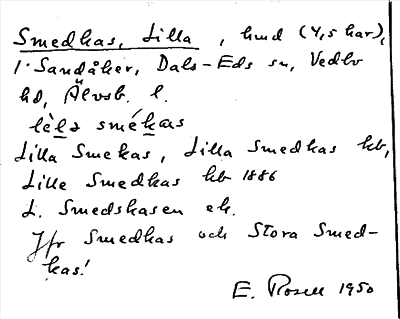 Smedkas, Lilla, hmd (4,5 har),
i Sandåker, Dals-Eds sn, Vedbo
hd, Älvsb. l.
lèla smékas
Lilla Smekas, Lilla Smedkas kb,
Lille Smedkas kb 1886
L. Smedskasen ek.
Jfr Smedkas och Stora Smed-
kas!
E. Rosell 1950